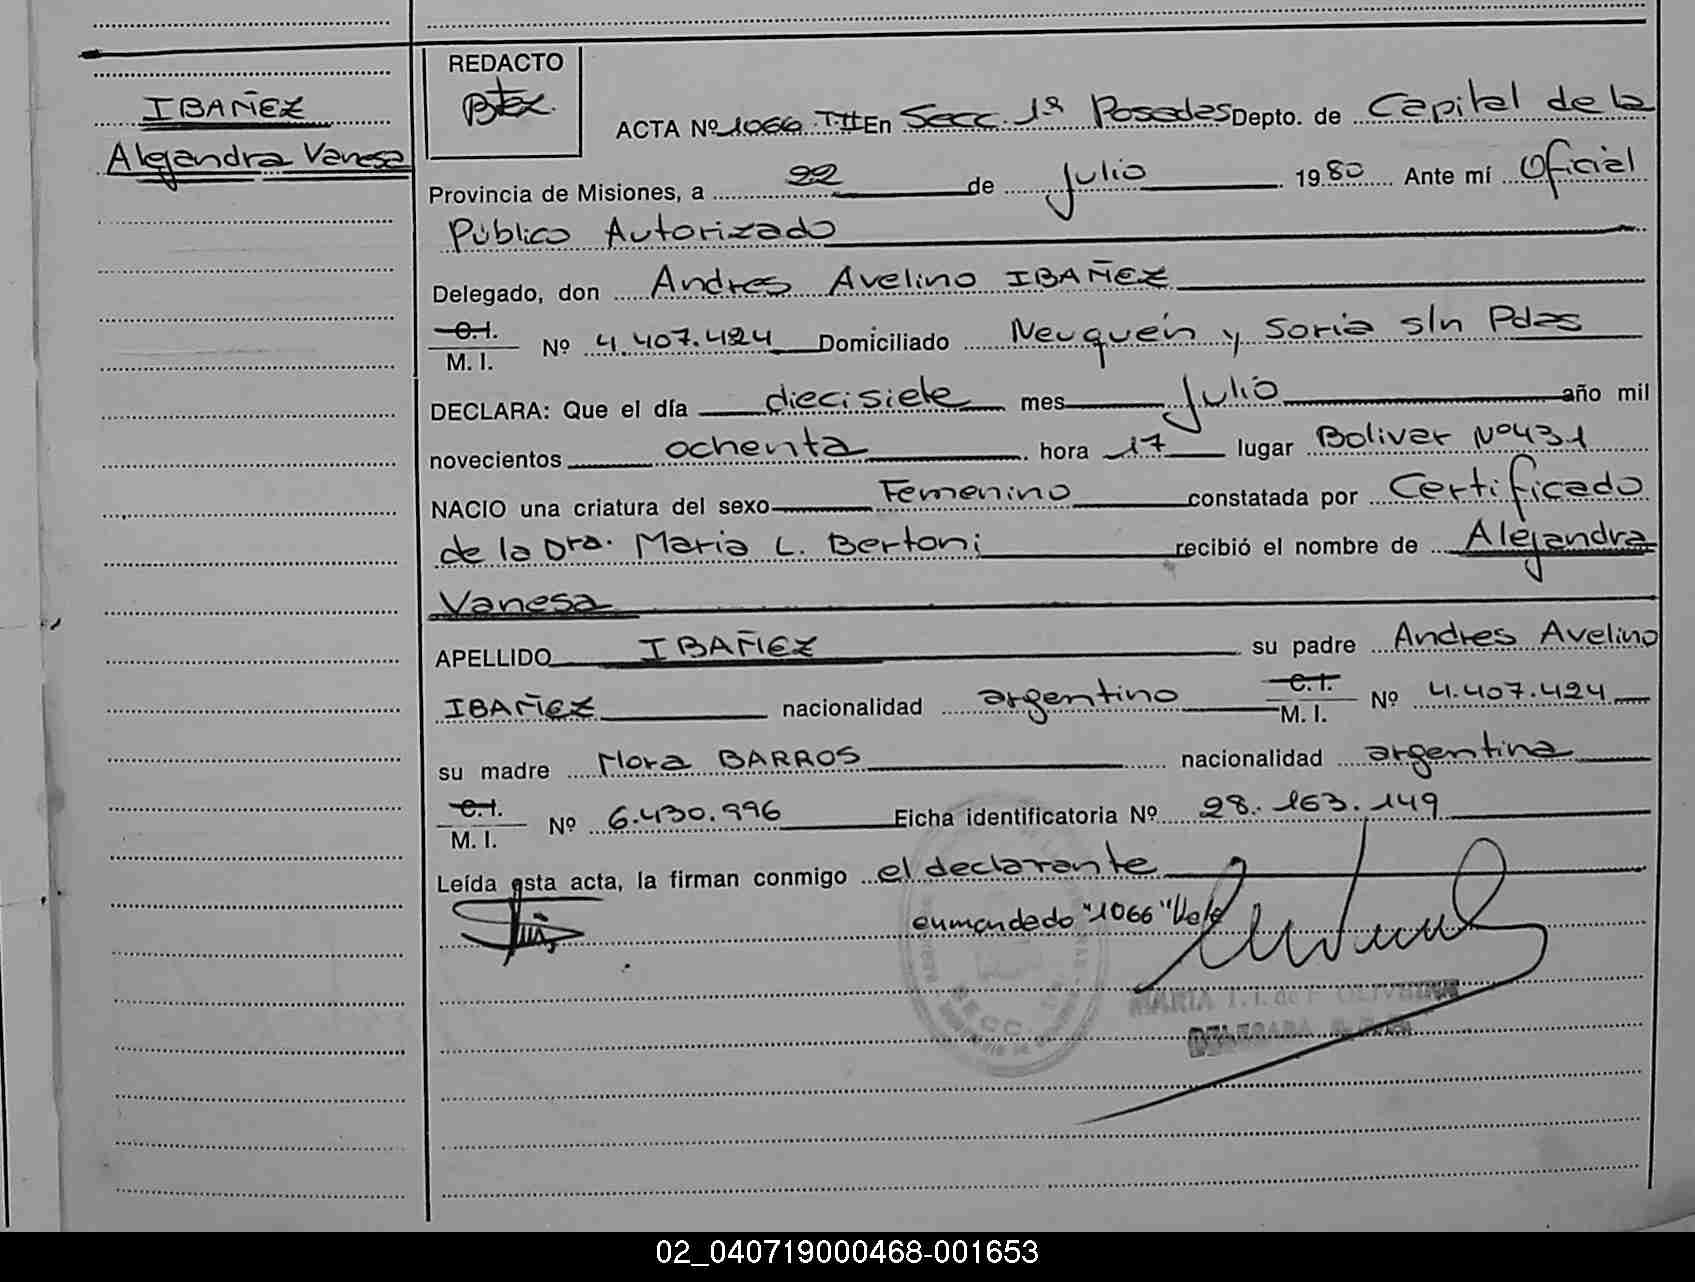 IBAÑEZ
Alejandra Vanesa
REDACTO
ACTA Nº 1066 TII En Secc. 1ª Posadas Depto. de Capital de la
Provincia de Misiones, a 22 de Julio 1980 Ante mí Oficial
Público Autorizado
Delegado, don Andres Avelino IBAÑEZ
C.I.
M. I. Nº 4.407.424 Domiciliado Neuquén y Soria s/n Pdas
DECLARA: Que el día diecisiete mes Julio año mil
novecientos ochenta hora 17 lugar Bolivar Nº 431
NACIO una criatura del sexo Femenino constatada por Certificado
de la Dra. Maria L. Bertoni recibió el nombre de Alejandra
Vanesa
APELLIDO IBAÑEZ su padre Andres Avelino
IBAÑEZ nacionalidad argentino C.I. M. I. Nº 4.407.424
su madre Nora BARROS nacionalidad argentina
C.I.
M. I. Nº 6.430.996 Ficha identificatoria Nº 28.163.149
Leída esta acta, la firman conmigo el declarante
enmendado "1066" Vale
MARIA
DELEGADA
SECC.
02_040719000468-001653